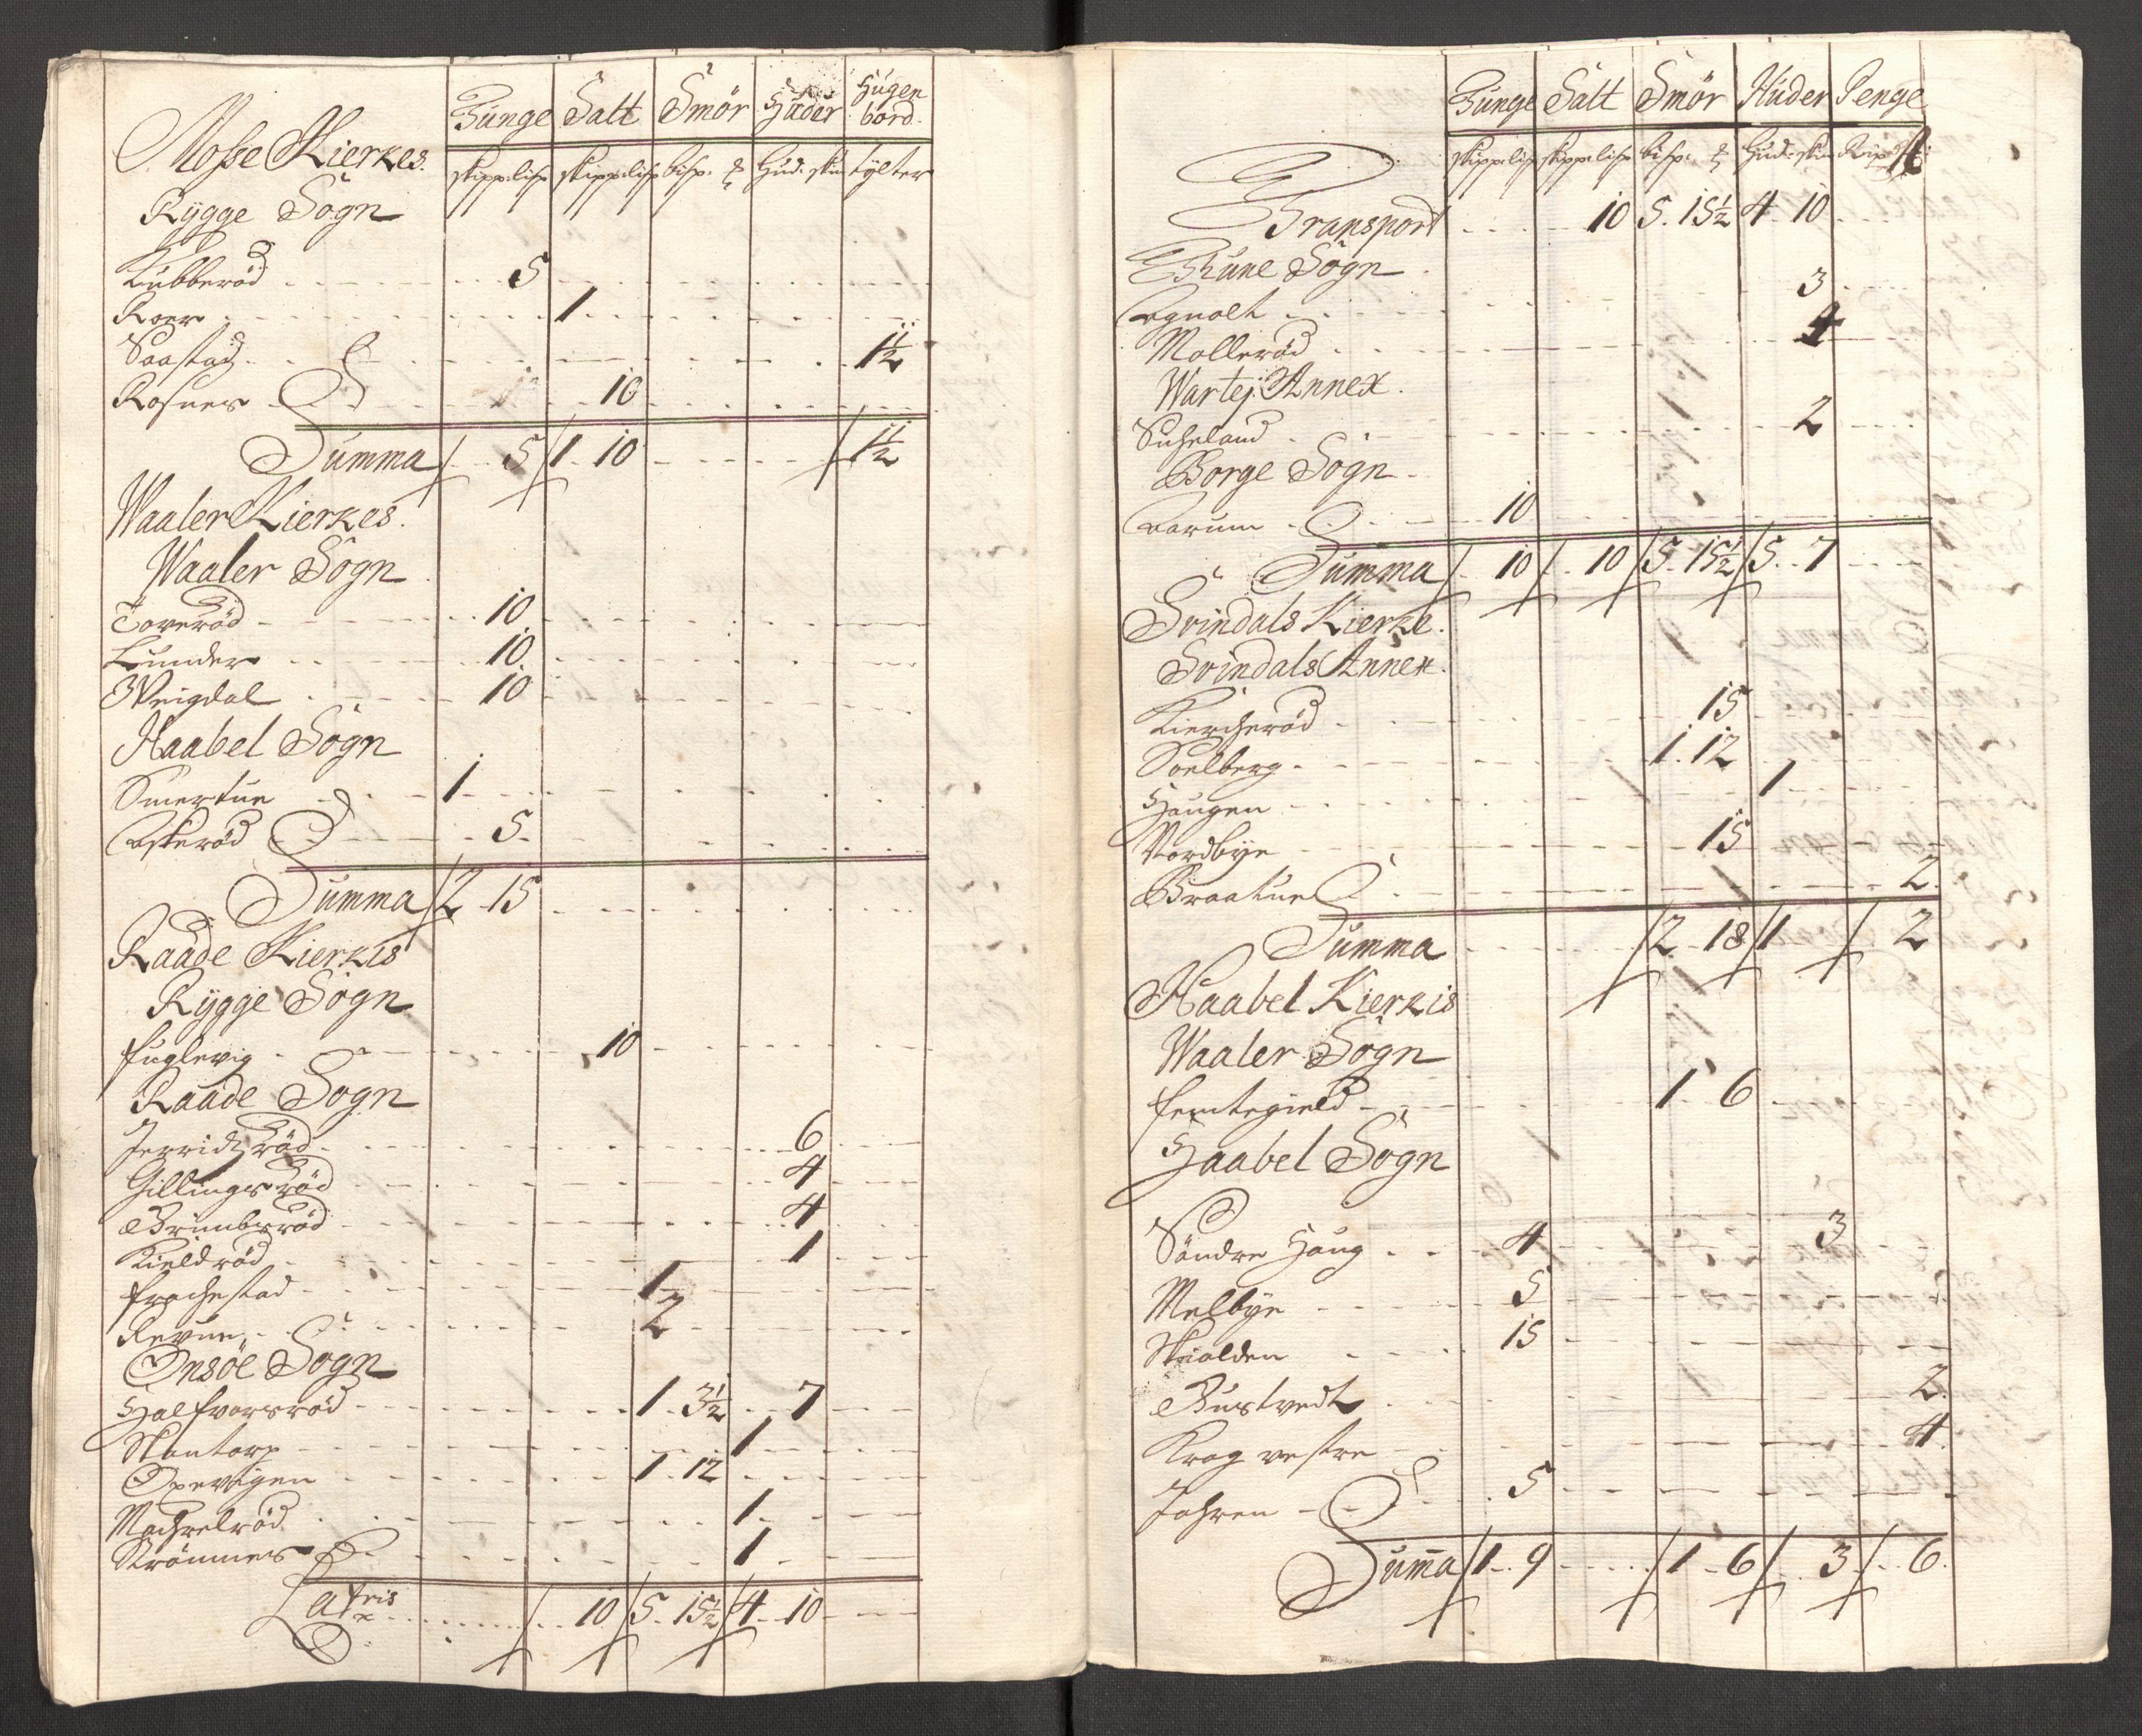 Tunge Salt Smör Huder Hugen bord
Mosse Kierkes. skipp: lisp skipp: lisp bisp: ℔ Hud: skin tylter
Rygge Sogn
Lubberöd 5
Roer 1
Saastad 1½
Rosnes 10
Summa 5 1 10 1½
Waaler Kierkes.
Waaler Sogn
Toveröd 10
Lunder 10
Weigdal 10
Haabel Sogn
Smertue 1
Askeröd 5
Summa 2 15
Raade Kierkis
Rygge Sogn
fuglevig 10
Raade Sogn
Jerridzröd 6
Gillingsröd 4
Brunbsröd 4
Kieldröd 1
frochestad 1
Revue 2
Onsöe Sogn
Halfvorsröd 1 3½ 7
Skantorp 1
Opevigen 1 12
Machrelröd 1
Strömnes 1
Latris 10 5 15½ 4 10
Tunge Salt Smör Huder Penge
skipp: lisp skipp: lisp bisp: ℔ Hud: skin
Transport 10 5. 15½ 4 10
Thune Sogn
Agnalt 3
Mölleröd 4
Wartej Annex.
Suheland 2
Borge Sogn
Aarum 10
Summa 10 10 5. 15½ 5 7
Svindals Kierke.
Svindals Annex.
Kiercheröd 15
Soelberg 1. 12
Haugen 1
Nordbye 15
Braatue 2.
Summa 2 18 1 2
Haabel Kierkis
Waaler Sogn
femtegield 1 6
Haabel Sogn
Söndre Haug 4 3
Melbye 5
Skiolden 15
Bustvedt 2.
Krog vestre 4.
Jahren 5
Suma 1 9 1 6 3 6.